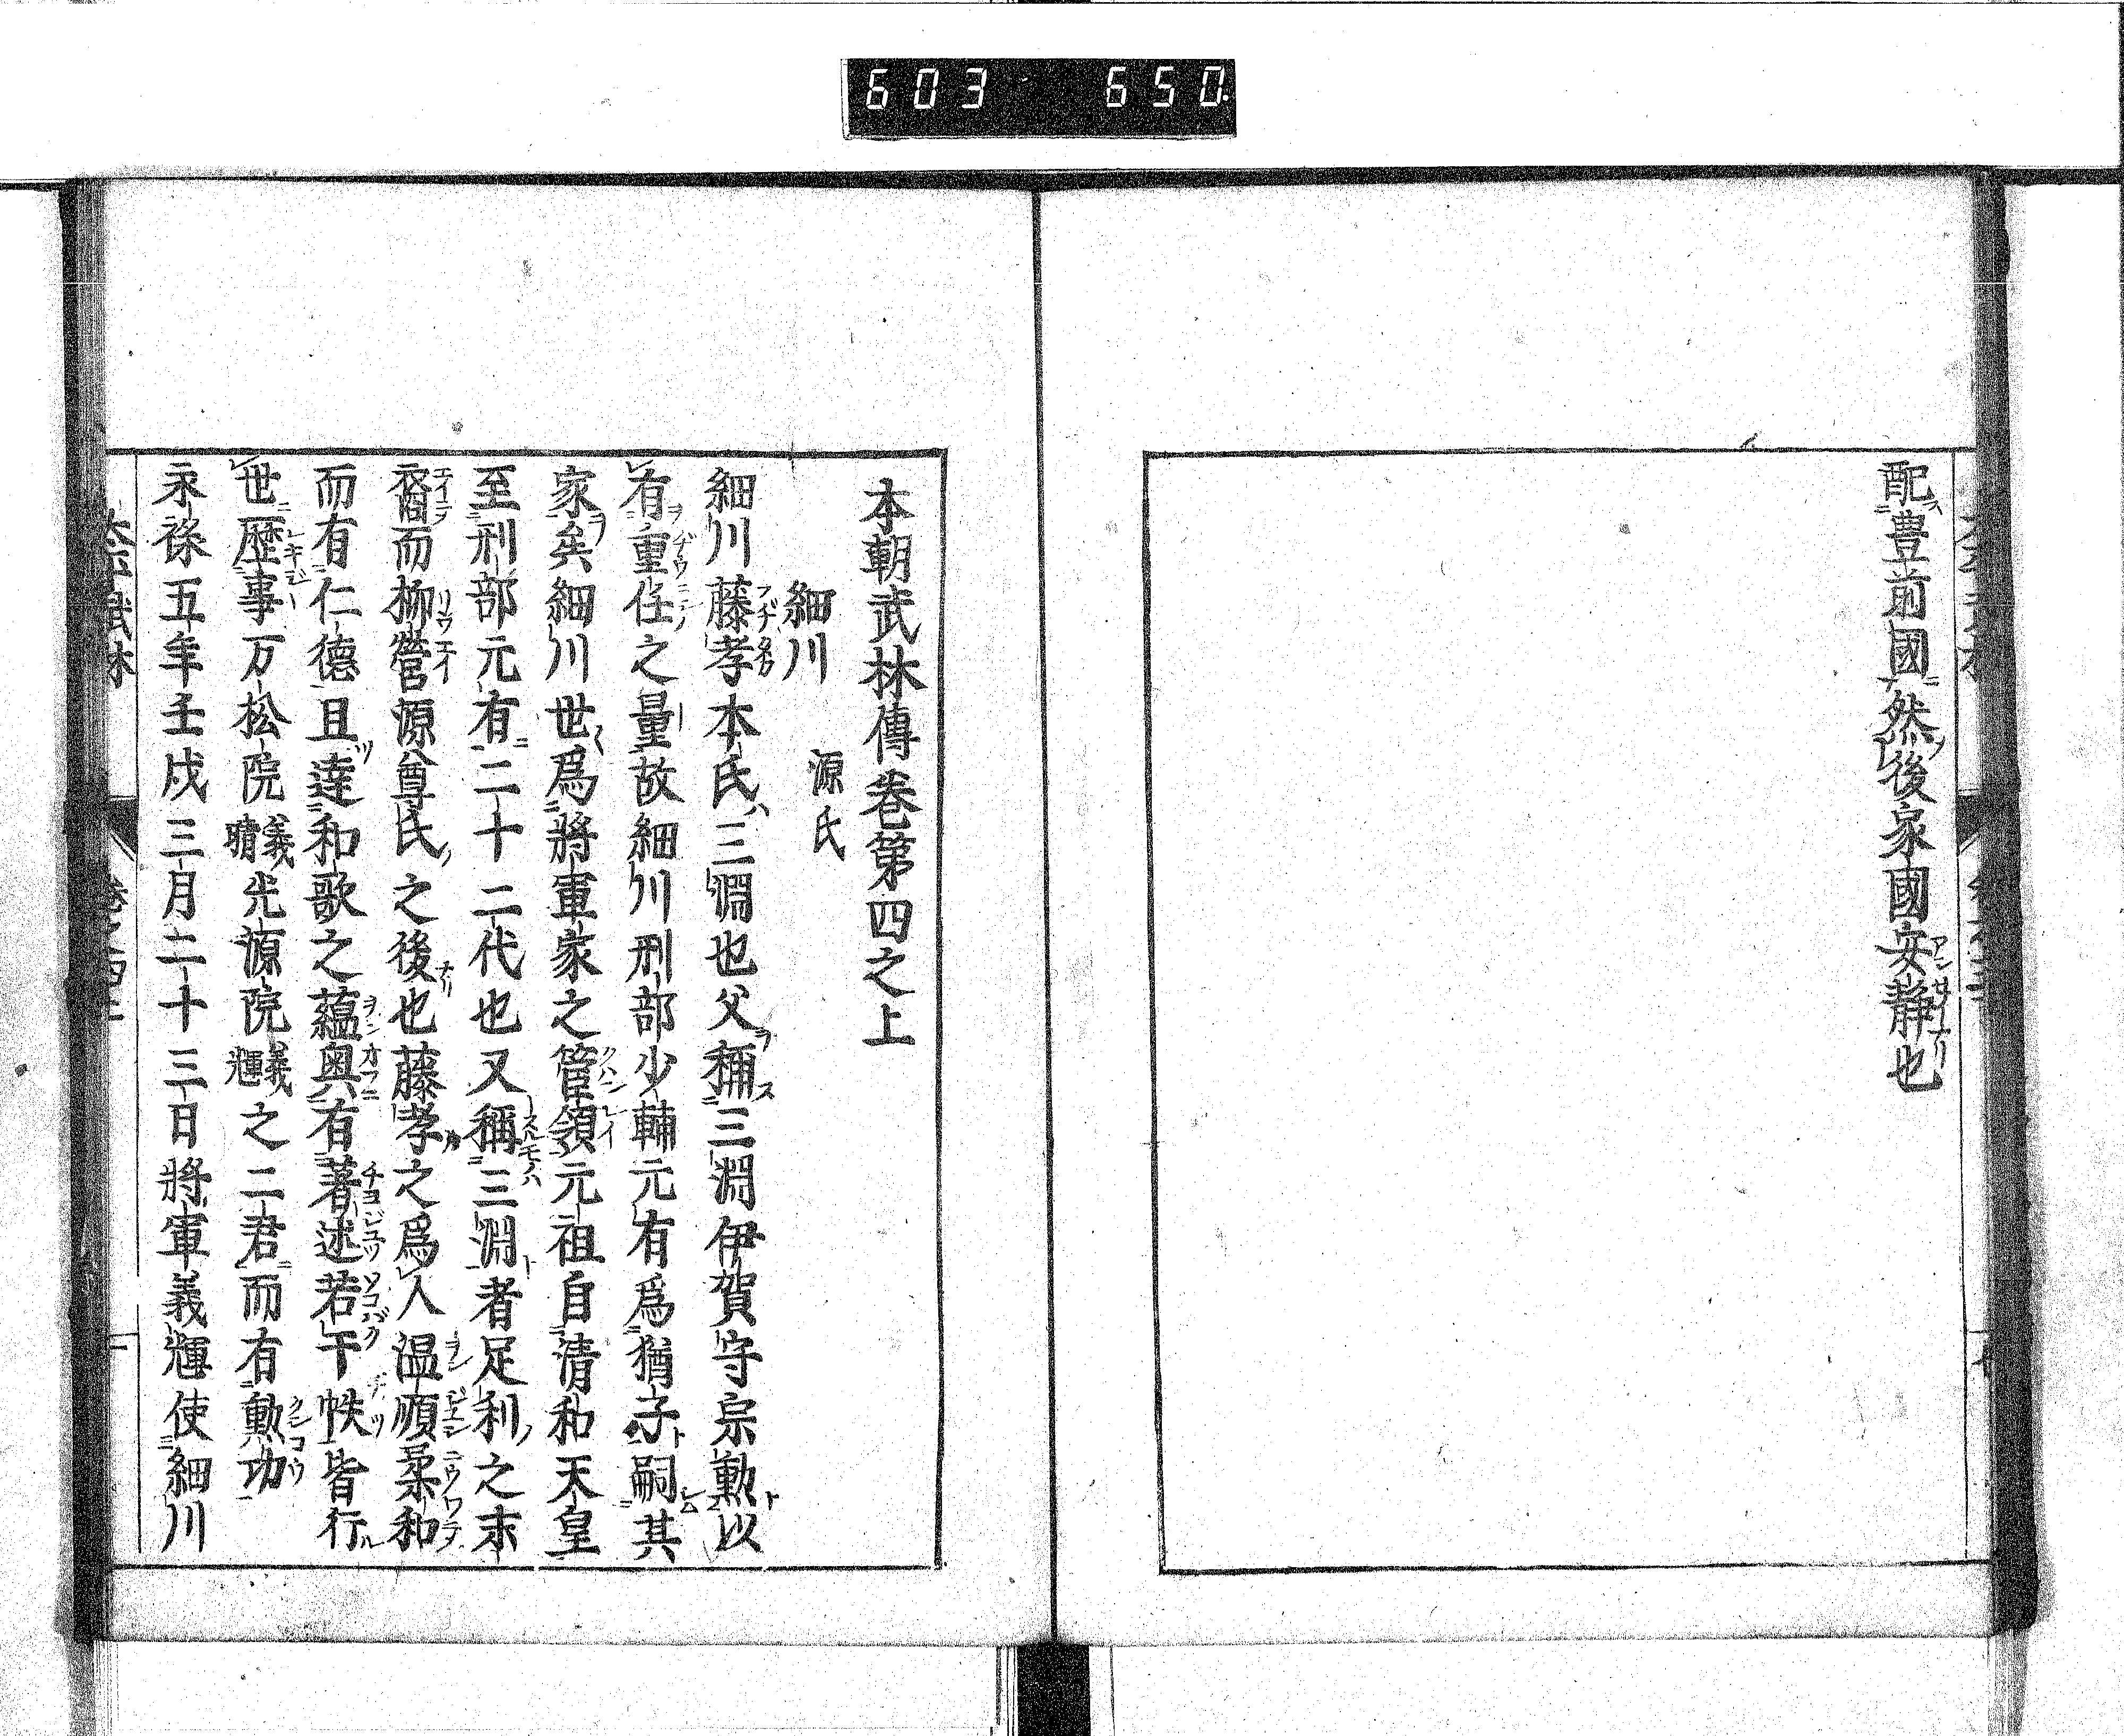 603 650
配豊前國然後家國安静也
本朝武林傳巻第四之上
細川 源氏
細川藤孝本氏三淵也父稱三淵伊賀守宗勳以
有重任之量故細川刑部少輔元有爲猶子嗣其
家矣細川世爲將軍家之管領元祖自清和天皇
至刑部元有二十二代也又稱三淵者足利之末
裔而柳營源尊氏之後也藤孝之爲人温順柔和
而有仁德且達和歌之蘊奥有著述若干帙皆行
世歴事万松院義晴光源院義輝之二君而有勲功
永祿五年壬戌三月二十三日將軍義輝使細川